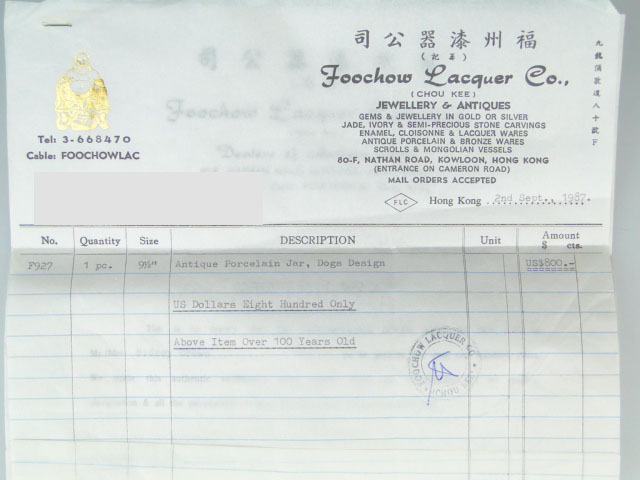 福州漆器公司
Foochow Lacquer Co.,
(CHOU KEE)
JEWELLERY & ANTIQUES
GEMS & JEWELLERY IN GOLD OR SILVER
JADE, IVORY & SEMI-PRECIOUS STONE CARVINGS
ENAMEL, CLOISONNE & LACQUER WARES
ANTIQUE PORCELAIN & BRONZE WARES
SCROLLS & MONGOLIAN VESSELS
80-F, NATHAN ROAD, KOWLOON, HONG KONG
(ENTRANCE ON CAMERON ROAD)
MAIL ORDERS ACCEPTED
Tel: 3-668470
Cable: FOOCHOWLAC
FLC Hong Kong 2nd Sept., 1987.
No. Quantity Size DESCRIPTION Unit Amount
$ cts.
F927 1 pc. 9½" Antique Porcelain Jar, Dogs Design US$800.-
US Dollars Eight Hundred Only
Above Item Over 100 Years Old
FOOCHOW LACQUER CO.